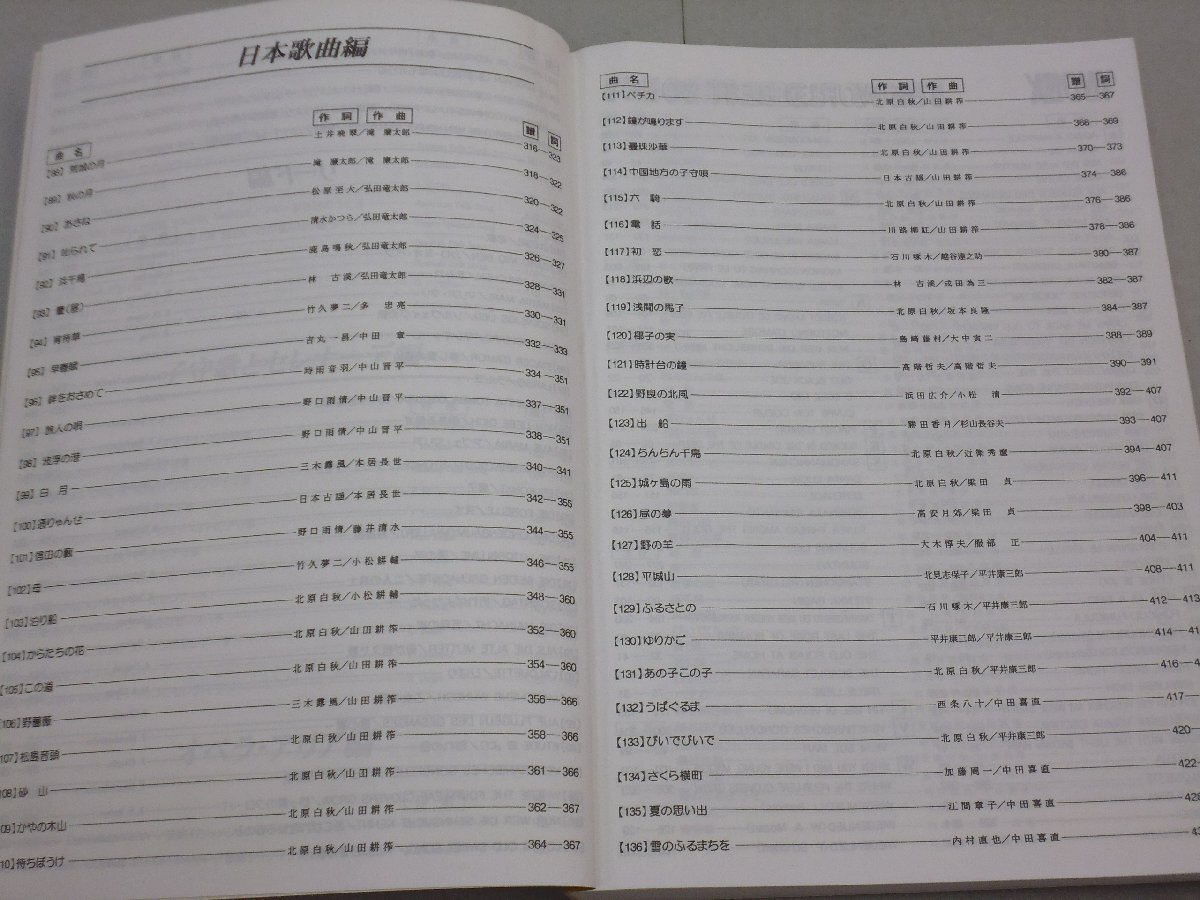 日本歌曲編
曲名 作詞 作曲 譜 詞
【88】荒城の月 土井晩翠/滝 廉太郎 316—323
【89】秋の月 滝 廉太郎/滝 廉太郎 318—322
【90】あさね 松原至大/弘田竜太郎 320—322
【91】叱られて 清水かつら/弘田竜太郎 324—325
【92】浜千鳥 鹿島鳴秋/弘田竜太郎 326—327
【93】昼(昼) 林 古溪/弘田竜太郎 328—331
【94】宵待草 竹久夢二/多 忠亮 330—331
【95】早春賦 吉丸一昌/中田 章 332—333
【96】鉾をおさめて 時雨音羽/中山晋平 334—351
【97】旅人の唄 野口雨情/中山晋平 337—351
【98】波浮の港 野口雨情/中山晋平 338—351
【99】白 月 三木露風/本居長世 340—341
【100】通りゃんせ 日本古謡/本居長世 342—355
【101】信田の藪 野口雨情/藤井清水 344—355
【102】母 竹久夢二/小松耕輔 346—355
【103】泊り船 北原白秋/小松耕輔 348—360
【104】からたちの花 北原白秋/山田耕筰 352—360
【105】この道 北原白秋/山田耕筰 354—360
【106】野薔薇 三木露風/山田耕筰 356—366
107】松島音頭 北原白秋/山田耕筰 358—366
108】砂 山 北原白秋/山田耕筰 361—366
09】かやの木山 北原白秋/山田耕筰 362—367
10】待ちぼうけ 北原白秋/山田耕筰 364—367
曲名 作詞 作曲 譜 詞
【111】ペチカ 北原白秋/山田耕筰 365—367
【112】鐘が鳴ります 北原白秋/山田耕筰 368—369
【113】曼珠沙華 北原白秋/山田耕筰 370—373
【114】中国地方の子守唄 日本古謡/山田耕筰 374—386
【115】六 騎 北原白秋/山田耕筰 376—386
【116】電 話 川路柳虹/山田耕筰 378—386
【117】初 恋 石川啄木/越谷達之助 380—387
【118】浜辺の歌 林 古溪/成田為三 382—387
【119】浅間の馬子 北原白秋/坂本良隆 384—387
【120】椰子の実 島崎藤村/大中寅二 388—389
【121】時計台の鐘 高階哲夫/高階哲夫 390—391
【122】野良の北風 浜田広介/小松 清 392—407
【123】出 船 勝田香月/杉山長谷夫 393—407
【124】らんらん千鳥 北原白秋/近衛秀麿 394—407
【125】城ヶ島の雨 北原白秋/梁田 貞 396—411
【126】昼の夢 高安月郊/梁田 貞 398—403
【127】野の羊 大木惇夫/服部 正 404—411
【128】平城山 北見志保子/平井康三郎 408—411
【129】ふるさとの 石川啄木/平井康三郎 412—413
【130】ゆりかご 平井康三郎/平井康三郎 414—41
【131】あの子この子 北原白秋/平井康三郎 416—4
【132】うばぐるま 西条八十/中田喜直 417—
【133】びいでびいで 北原白秋/平井康三郎 420—
【134】さくら横町 加藤周一/中田喜直 422—
【135】夏の思い出 江間章子/中田喜直 428
【136】雪のふるまちを 内村直也/中田喜直